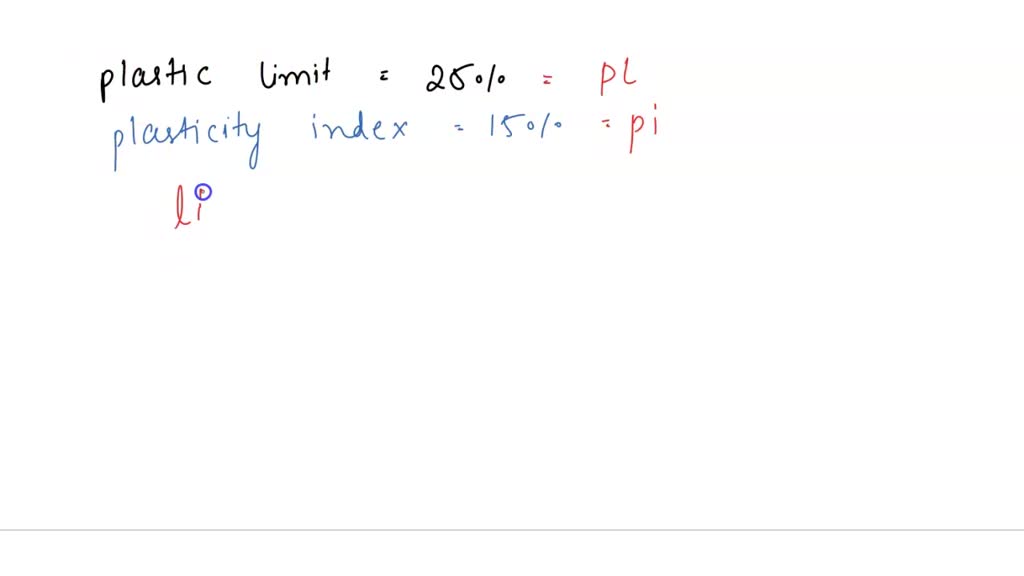 plastic limit = 25% = PL
plasticity index = 15% = pi
li